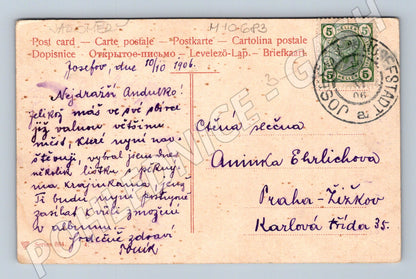 Post card — Carte postale — Postkarte — Cartolina postale
Dopisnice — Открытое письмо — Levelező-Lap. — Briefkaart
Josefov, dne 10/10 1906.
Nejdražší Andulko!
Jelikož máš ve své sbírce
již valnou většinu
měst, které nyní nav-
štěvuji, vybral jsem
několik lístků s pěkný-
ma krajinkama, jenž
Ti budu nyní postupně
zasílat
v album.
Srdečně zdraví
Ctěná slečna
Aninka Ehrlichova
Praha-Žižkov
Karlova třída 35.
5 5
HELLER
5 5
JOSEFSTADT